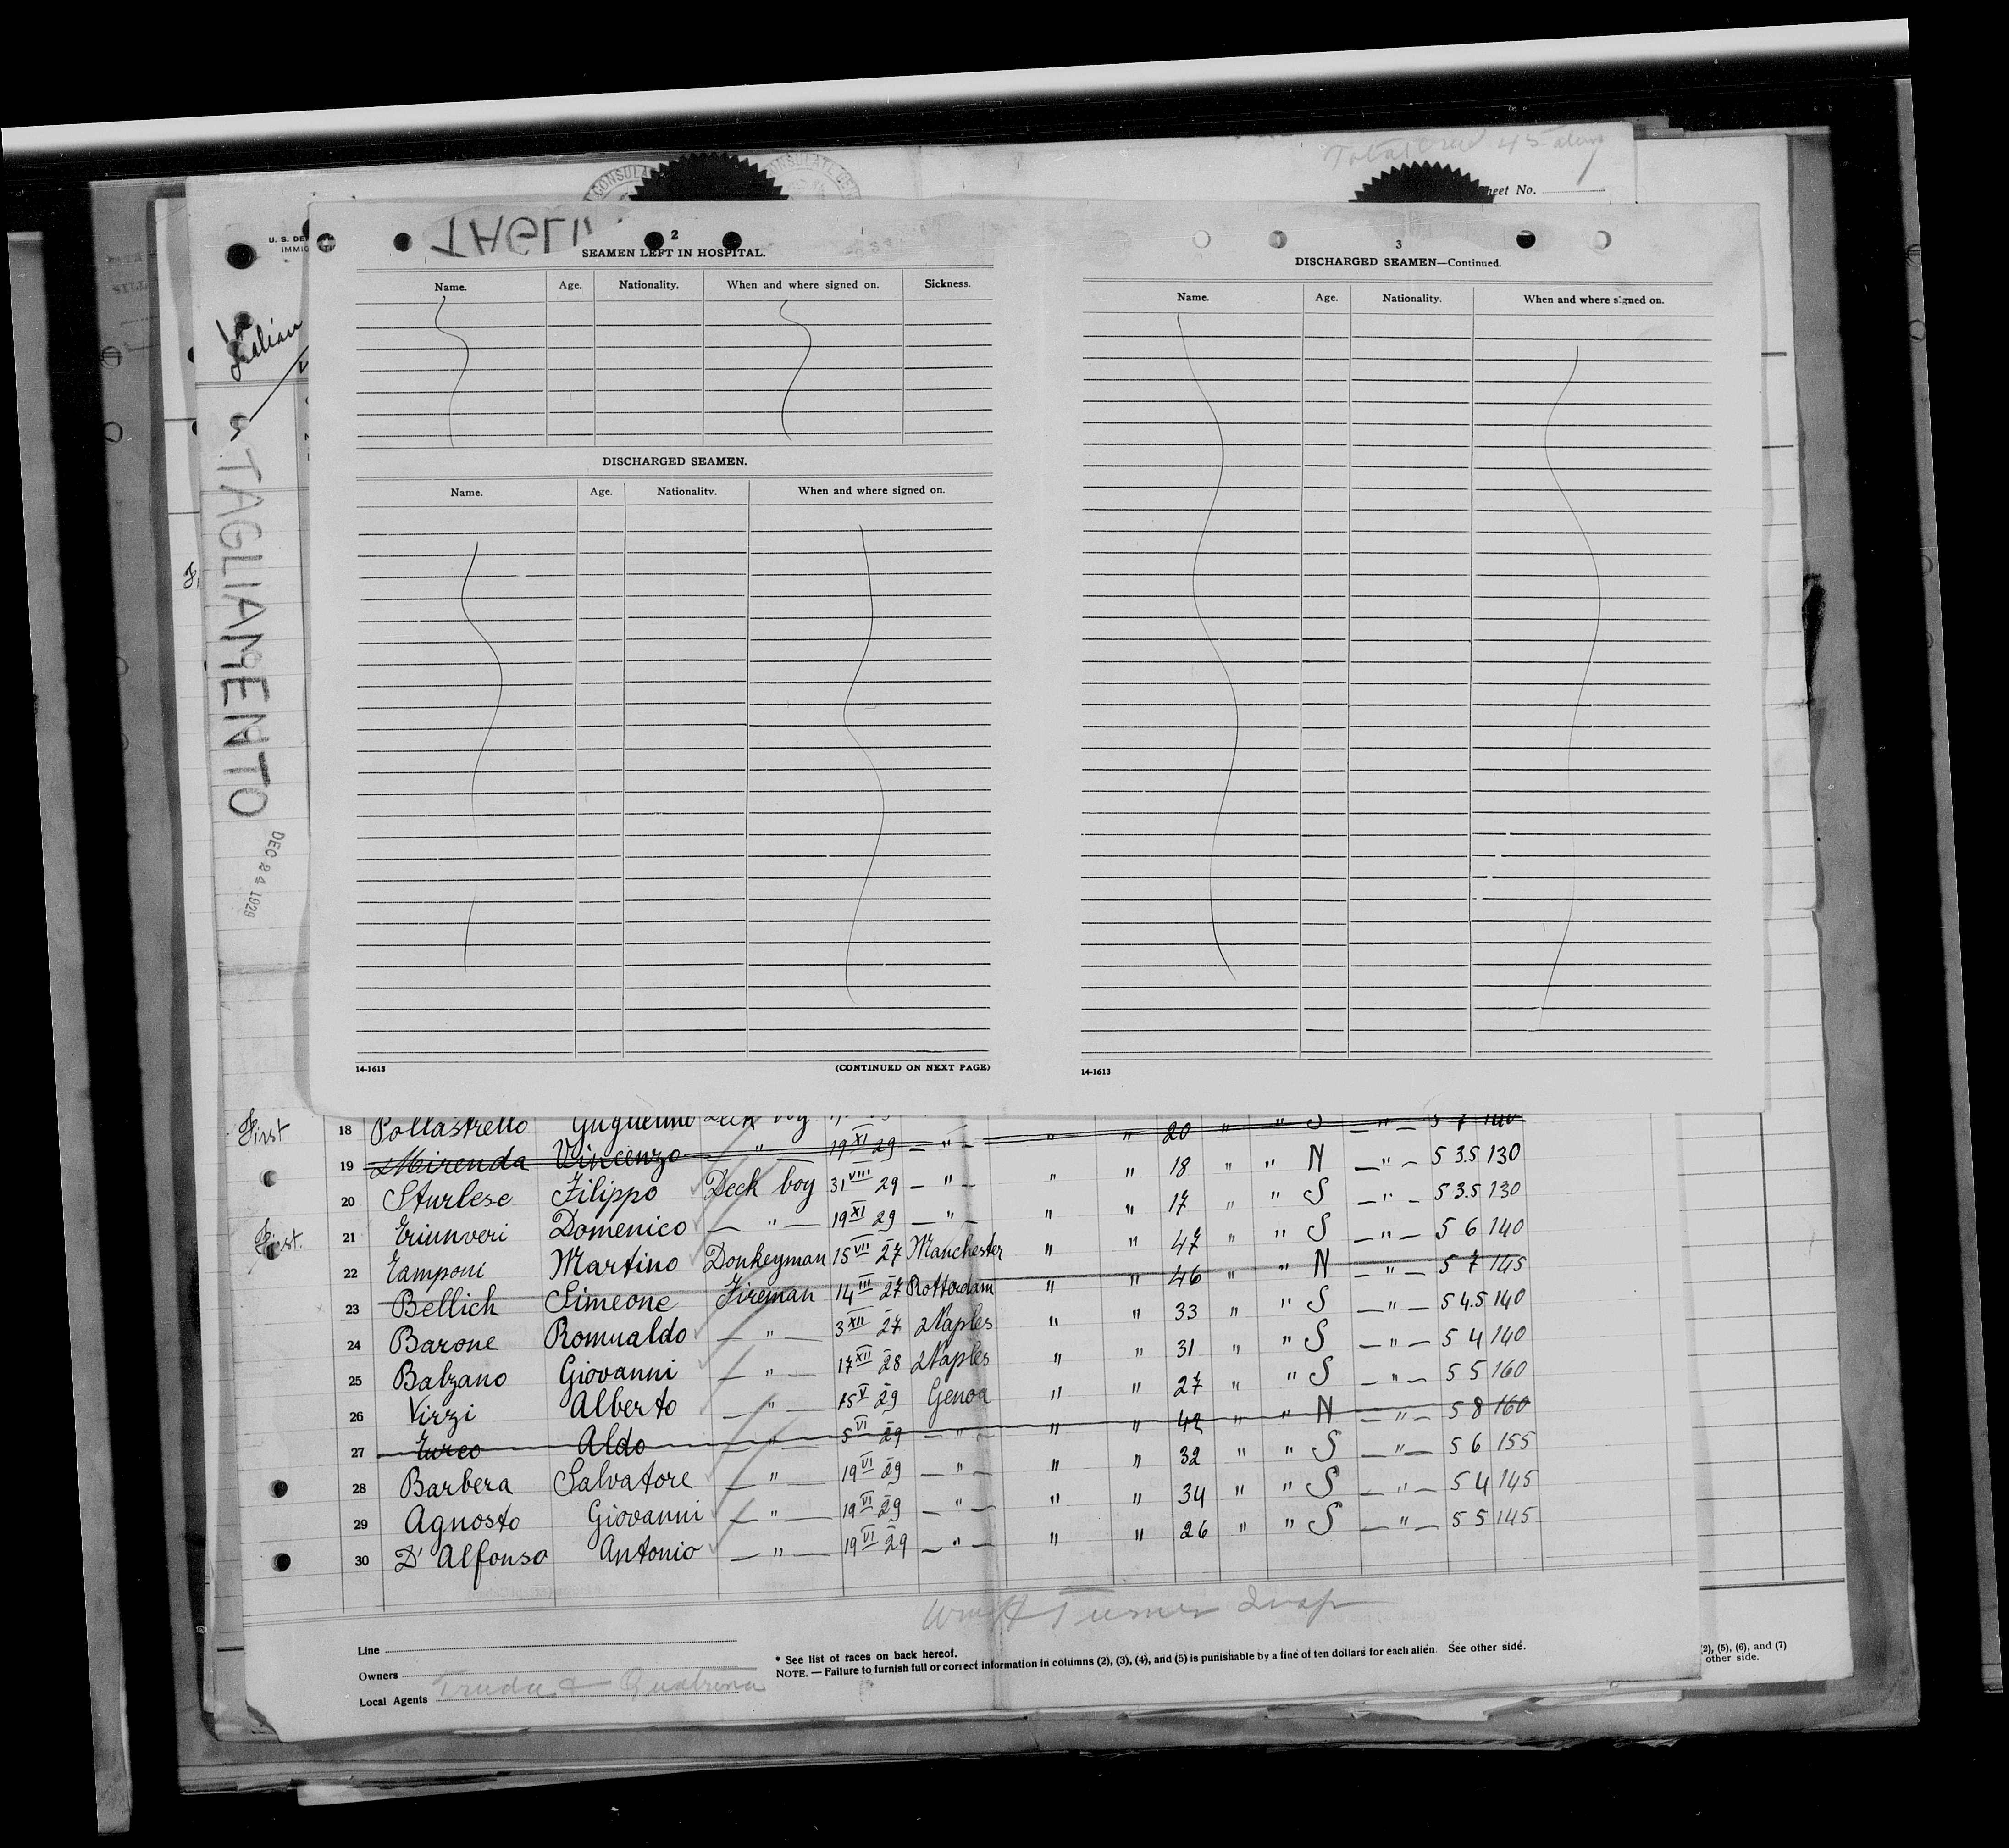 Total Crew 45
eet No.
CONSULA
CONSULATE GE
U. S. DE
IMMIG
TAGLI
2
SEAMEN LEFT IN HOSPITAL.
Name. Age. Nationality. When and where signed on. Sickness.
DISCHARGED SEAMEN.
Name. Age. Nationality. When and where signed on.
14-1613 (CONTINUED ON NEXT PAGE)
3
DISCHARGED SEAMEN—Continued.
Name. Age. Nationality. When and where signed on.
14-1613
Italian
TAGLIAMENTO
DEC 24 1929
First 18 Pollastrello Guglielmo Deck boy
19 Mirenda Vincenzo — " — 19 XI 29 — " — " " 20 " " S — " — 5 7 140
20 Sturlese Filippo Deck boy 31 VIII 29 — " — " " 18 " " N — " — 5 3.5 130
First. 21 Domenico — " — 19 XI 29 — " — " " 17 " " S — " — 5 3.5 130
22 Tamponi Martino Donkeyman 15 VII 27 Manchester " " 47 " " S — " — 5 6 140
23 Bellich Simeone Fireman 14 III 27 Rotterdam " " 46 " " N — " — 5 7 145
24 Barone Romualdo — " — 3 XII 27 Naples " " 33 " " S — " — 5 4.5 140
25 Balzano Giovanni — " — 17 XII 28 Naples " " 31 " " S — " — 5 4 140
26 Virzi Alberto — " — 15 V 29 Genoa " " 27 " " S — " — 5 5 160
27 Turco Aldo — " — 5 VI 29 — " — " " 42 " " N — " — 5 8 160
28 Barbera Salvatore — " — 19 VI 29 — " — " " 32 " " S — " — 5 6 155
29 Agnosto Giovanni — " — 19 VI 29 — " — " " 34 " " S — " — 5 4 145
30 D'Alfonso Antonio — " — 19 VI 29 — " — " " 26 " " S — " — 5 5 145
Turner Insp
Line
Owners
Local Agents Truda & Quatrina
* See list of races on back hereof.
NOTE. — Failure to furnish full or correct information in columns (2), (3), (4), and (5) is punishable by a fine of ten dollars for each alien. See other side.
(2), (5), (6), and (7)
other side.